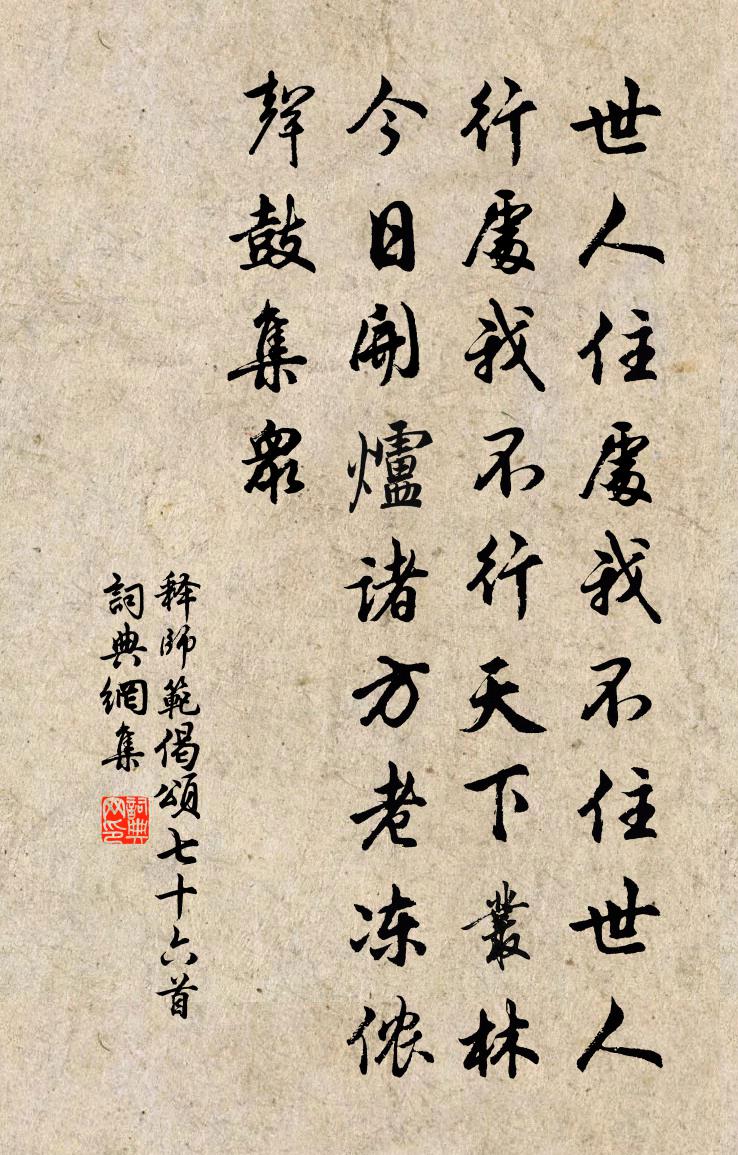 世人住處我不住世人
行處我不行天下叢林
今日開爐諸方老冻侬
聲鼓集眾
释師範偈頌七十六首
詞典網集
詞典网印